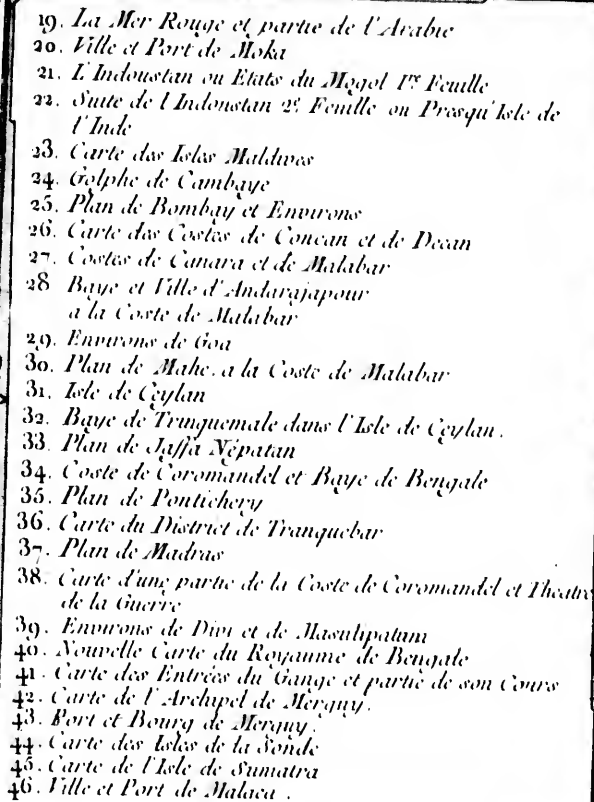 19. La Mer Rouge et partie de l'Arabie
20. Ville et Port de Moka
21. L'Indoustan ou Etats du Mogol 1re Feuille
22. Suite de l'Indoustan 2e. Feuille ou Presqu'Isle de
l'Inde
23. Carte des Isles Maldives
24. Golphe de Cambaye
25. Plan de Bombay et Environs
26. Carte des Costes de Concan et de Decan
27. Costes de Canara et de Malabar
28 Baye et Ville d'Andarajapour
a la Coste de Malabar
29. Environs de Goa
30. Plan de Mahe. a la Coste de Malabar
31. Isle de Ceylan
32. Baye de Trinquemale dans l'Isle de Ceylan.
33. Plan de Jaffa Népatan
34. Coste de Coromandel et Baye de Bengale
35. Plan de Pontichery
36. Carte du District de Tranquebar
37. Plan de Madras
38. Carte d'une partie de la Coste de Coromandel et Theatre
de la Guerre
39. Environs de Divi et de Masulipatam
40. Nouvelle Carte du Royaume de Bengale
41. Carte des Entrées du Gange et partie de son Cours
42. Carte de l'Archipel de Merguy.
43. Port et Bourg de Merguy.
44. Carte des Isles de la Sonde
45. Carte de l'Isle de Sumatra
46. Ville et Port de Malaca.